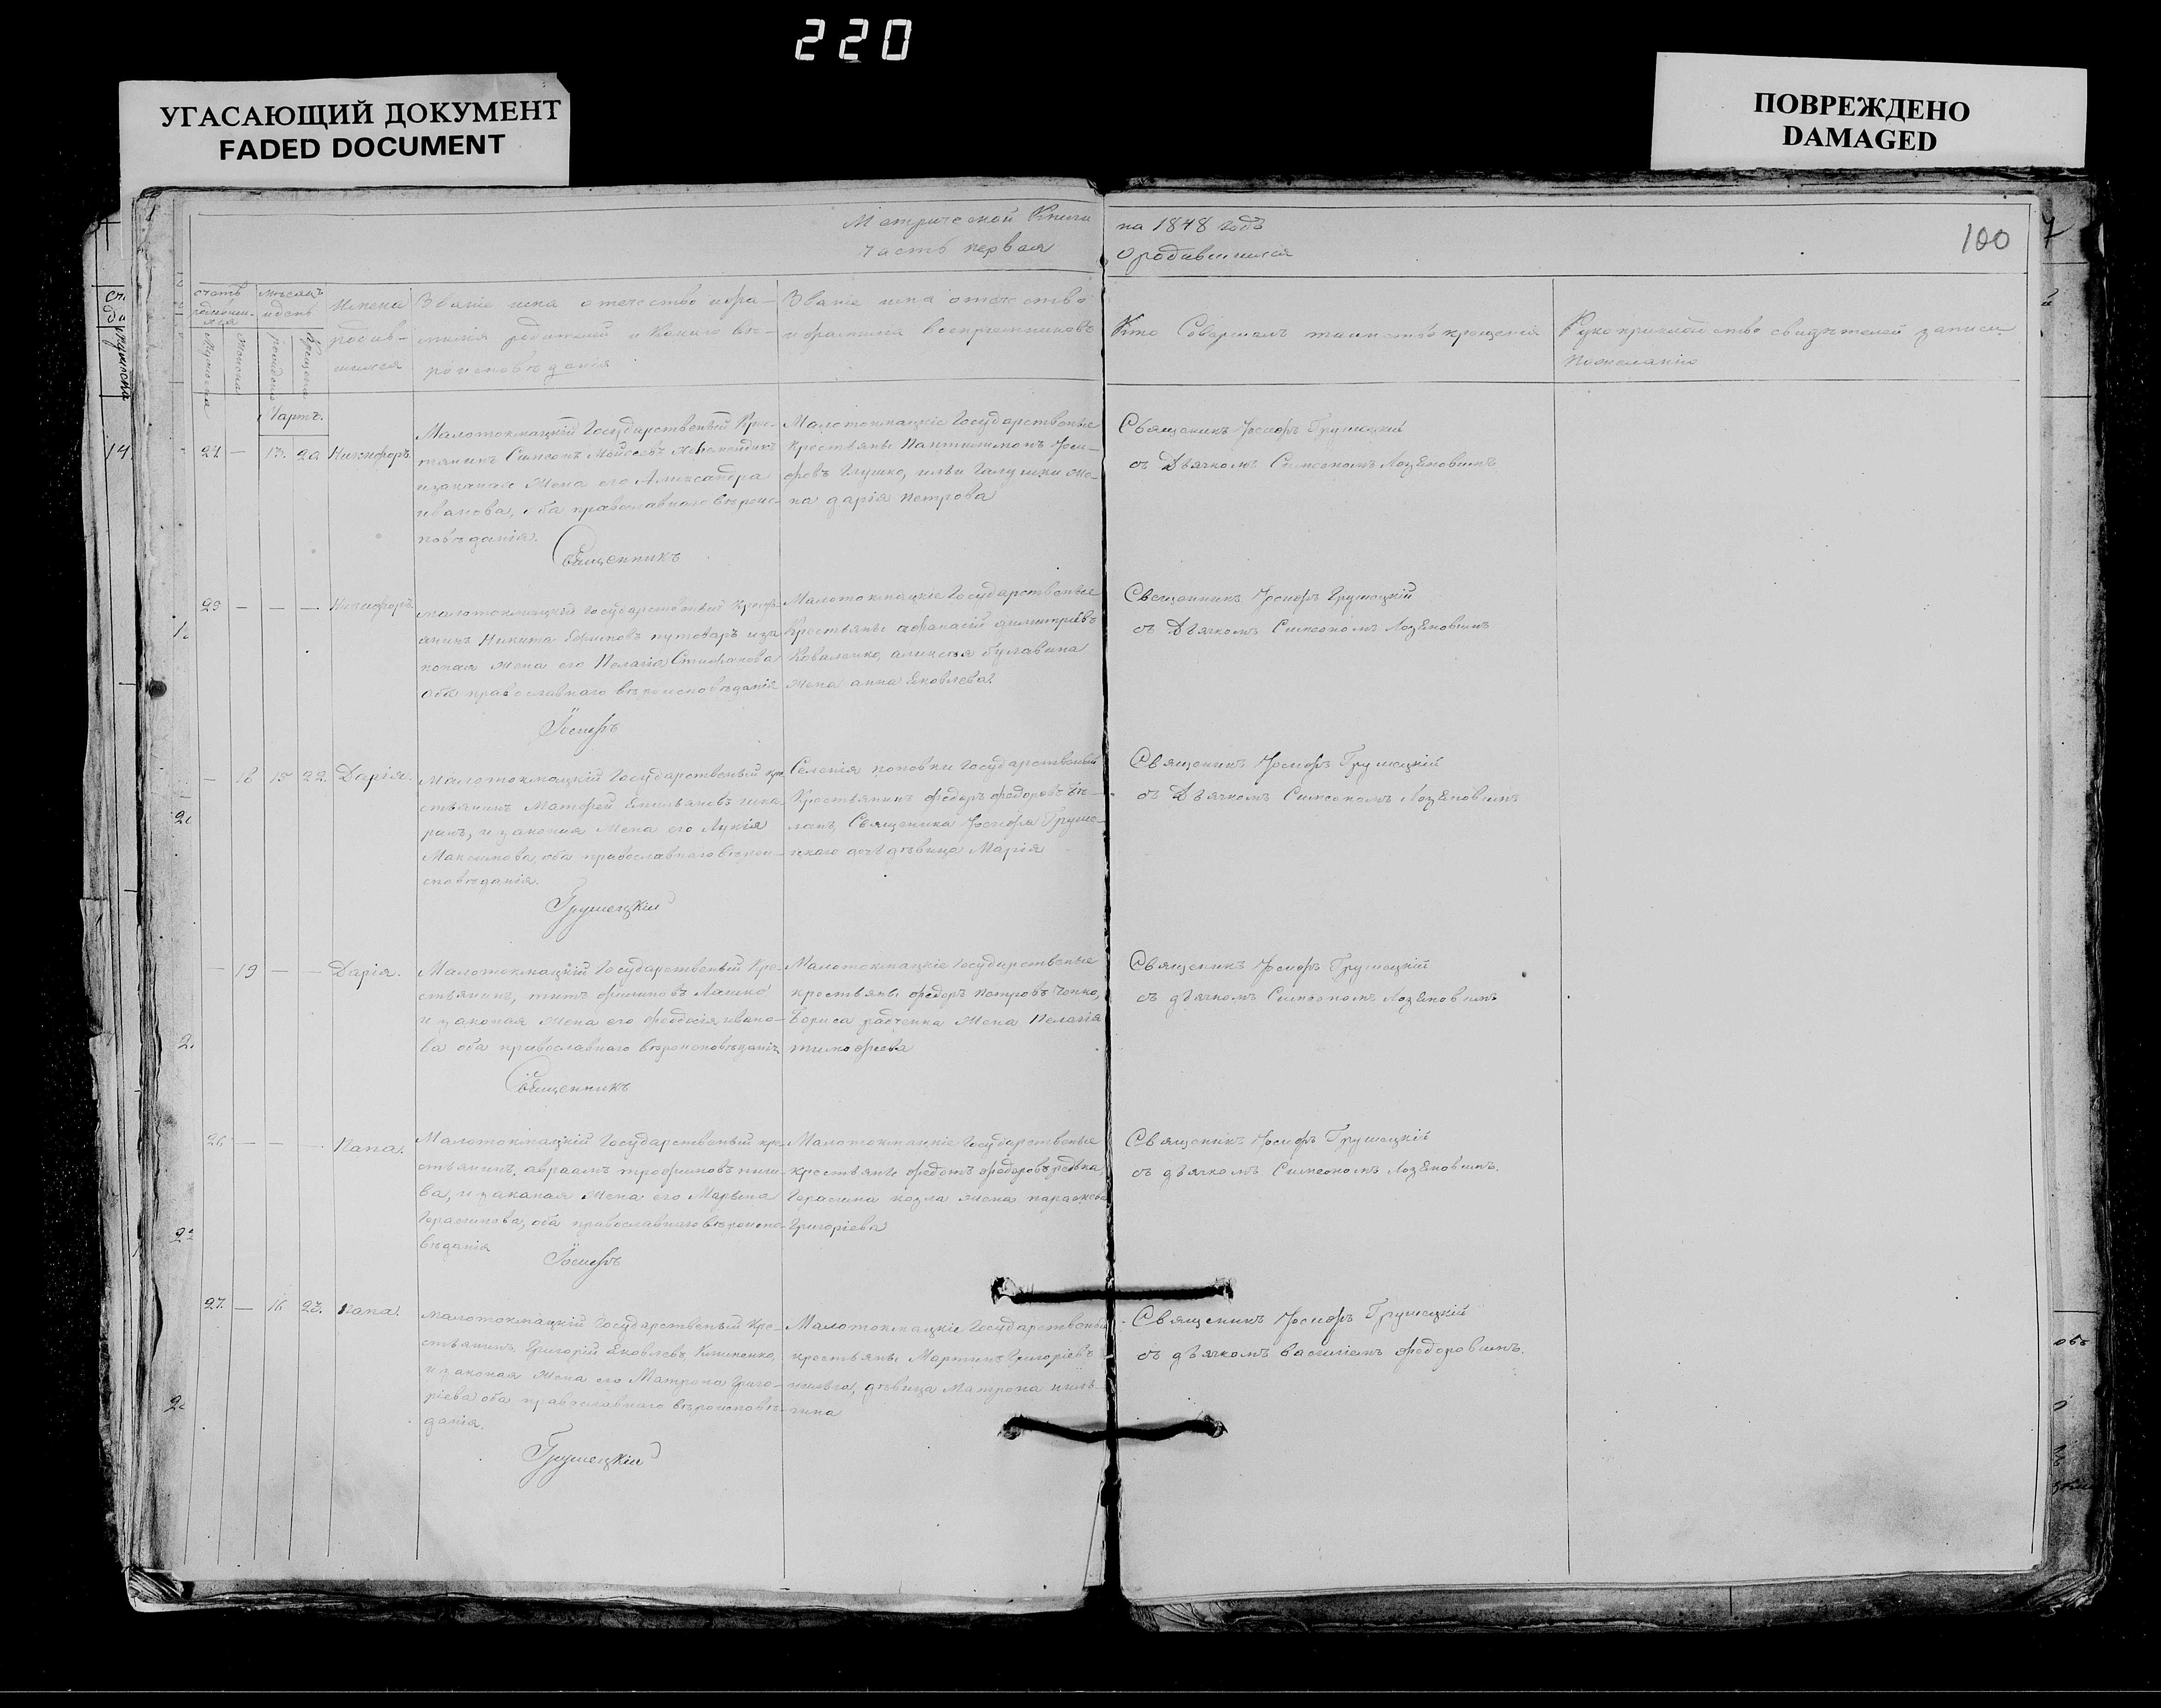 220
УГАСАЮЩИЙ ДОКУМЕНТ
FADED DOCUMENT
ПОВРЕЖДЕНО
DAMAGED
Метрической Книги на 1848 годъ
часть первая о родившихся
100
счетъ родившихся
мѣсяцъ и день
Имена родившихся
Званіе имя отечество и фамилія родителей и Какого вѣроисповѣданія
Званіе имя отечество и фамилія воспріемниковъ
Кто Совершалъ таинство крещенія
Рукоприкладство свидѣтелей записи по желанію
Мартъ.
24 — 13. 20 Никифоръ
Малотокмацкій Государственый Крес-
тянинъ Симеонъ Моисеевъ
и законая Жена его Александра
иванова, оба православнаго вѣроис-
повѣданія.
Малотокмацкіе Государственые
Крестьяны Пантилимонъ Іоси-
фовъ Глушко, ильи Галушки же-
на дарія петрова
Священикъ Іосифъ Грушецкій
съ Дьячкомъ Симеономъ
Священникъ
25 — — — Никифоръ.
Малотокмацкій Государственый Кресть-
янинъ Никита Ефимовъ путоваръ и за-
коная жена его Пелагія Стифанова
оба православнаго вѣроисповѣданія
Малотокмацкіе Государственые
Крестьяны афанасій димитріевъ
Коваленко, аликсѣя булавина
жена анна Яковлева
Священникъ Іосифъ Грушецкій
съ Дьячкомъ Симеономъ
Іосифъ
— 18 15 22. Дарія.
Малотокмацкій Государственый кре-
стьянинъ Матфей Емильяновъ
и законая Жена его Лукія
Максимова, оба православнаго вѣрои-
сповѣданія.
Селенія поповки Государственый
Крестьянинъ федоръ федоровъ
Священика Іосифа Груше-
цкаго дочь дѣвица Марія
Священикъ Іосифъ Грушецкій
съ Дьячкомъ Симеономъ
Грушецкій
— 19 — — Дарія.
Малотокмацкій Государственый Кре-
стьянинъ, титъ филиповъ Ляшко
и законая жена его феодосія ивано-
ва оба православнаго вѣроисповѣданія
Малотокмацкіе Государственые
крестьяны федоръ петровъ
Бориса радченка Жена Пелагія
тимофеева
Священикъ Іосифъ Грушецкій
съ дьячкомъ Симеономъ
Священникъ
26 — — — Папа.
Малотокмацкій Государственый кре-
стьянинъ, авраамъ трофимовъ
и законая Жена его Марѳина
Герасимова, оба православнаго вѣроиспо-
вѣданія
Малотокмацкіе Государственые
крестьяне федотъ федоровъ редька,
Герасима козла жена параскева
Григоріева
Священикъ Іосифъ Грушецкій
съ дьячкомъ Симеономъ
Іосифъ
27. — 16 23. Папа.
Малотокмацкій Государственый Кре-
стьянинъ, Григорій Яковлевъ Клименко,
и законая Жена его Матрона Григо-
ріева оба православнаго вѣроисповѣ-
данія.
Малотокмацкіе Государственые
крестьяны Мартинъ Григоріевъ
дѣвица Матрона
Священикъ Іосифъ Грушецкій
съ дьячкомъ василіемъ федоровымъ.
Грушецкій